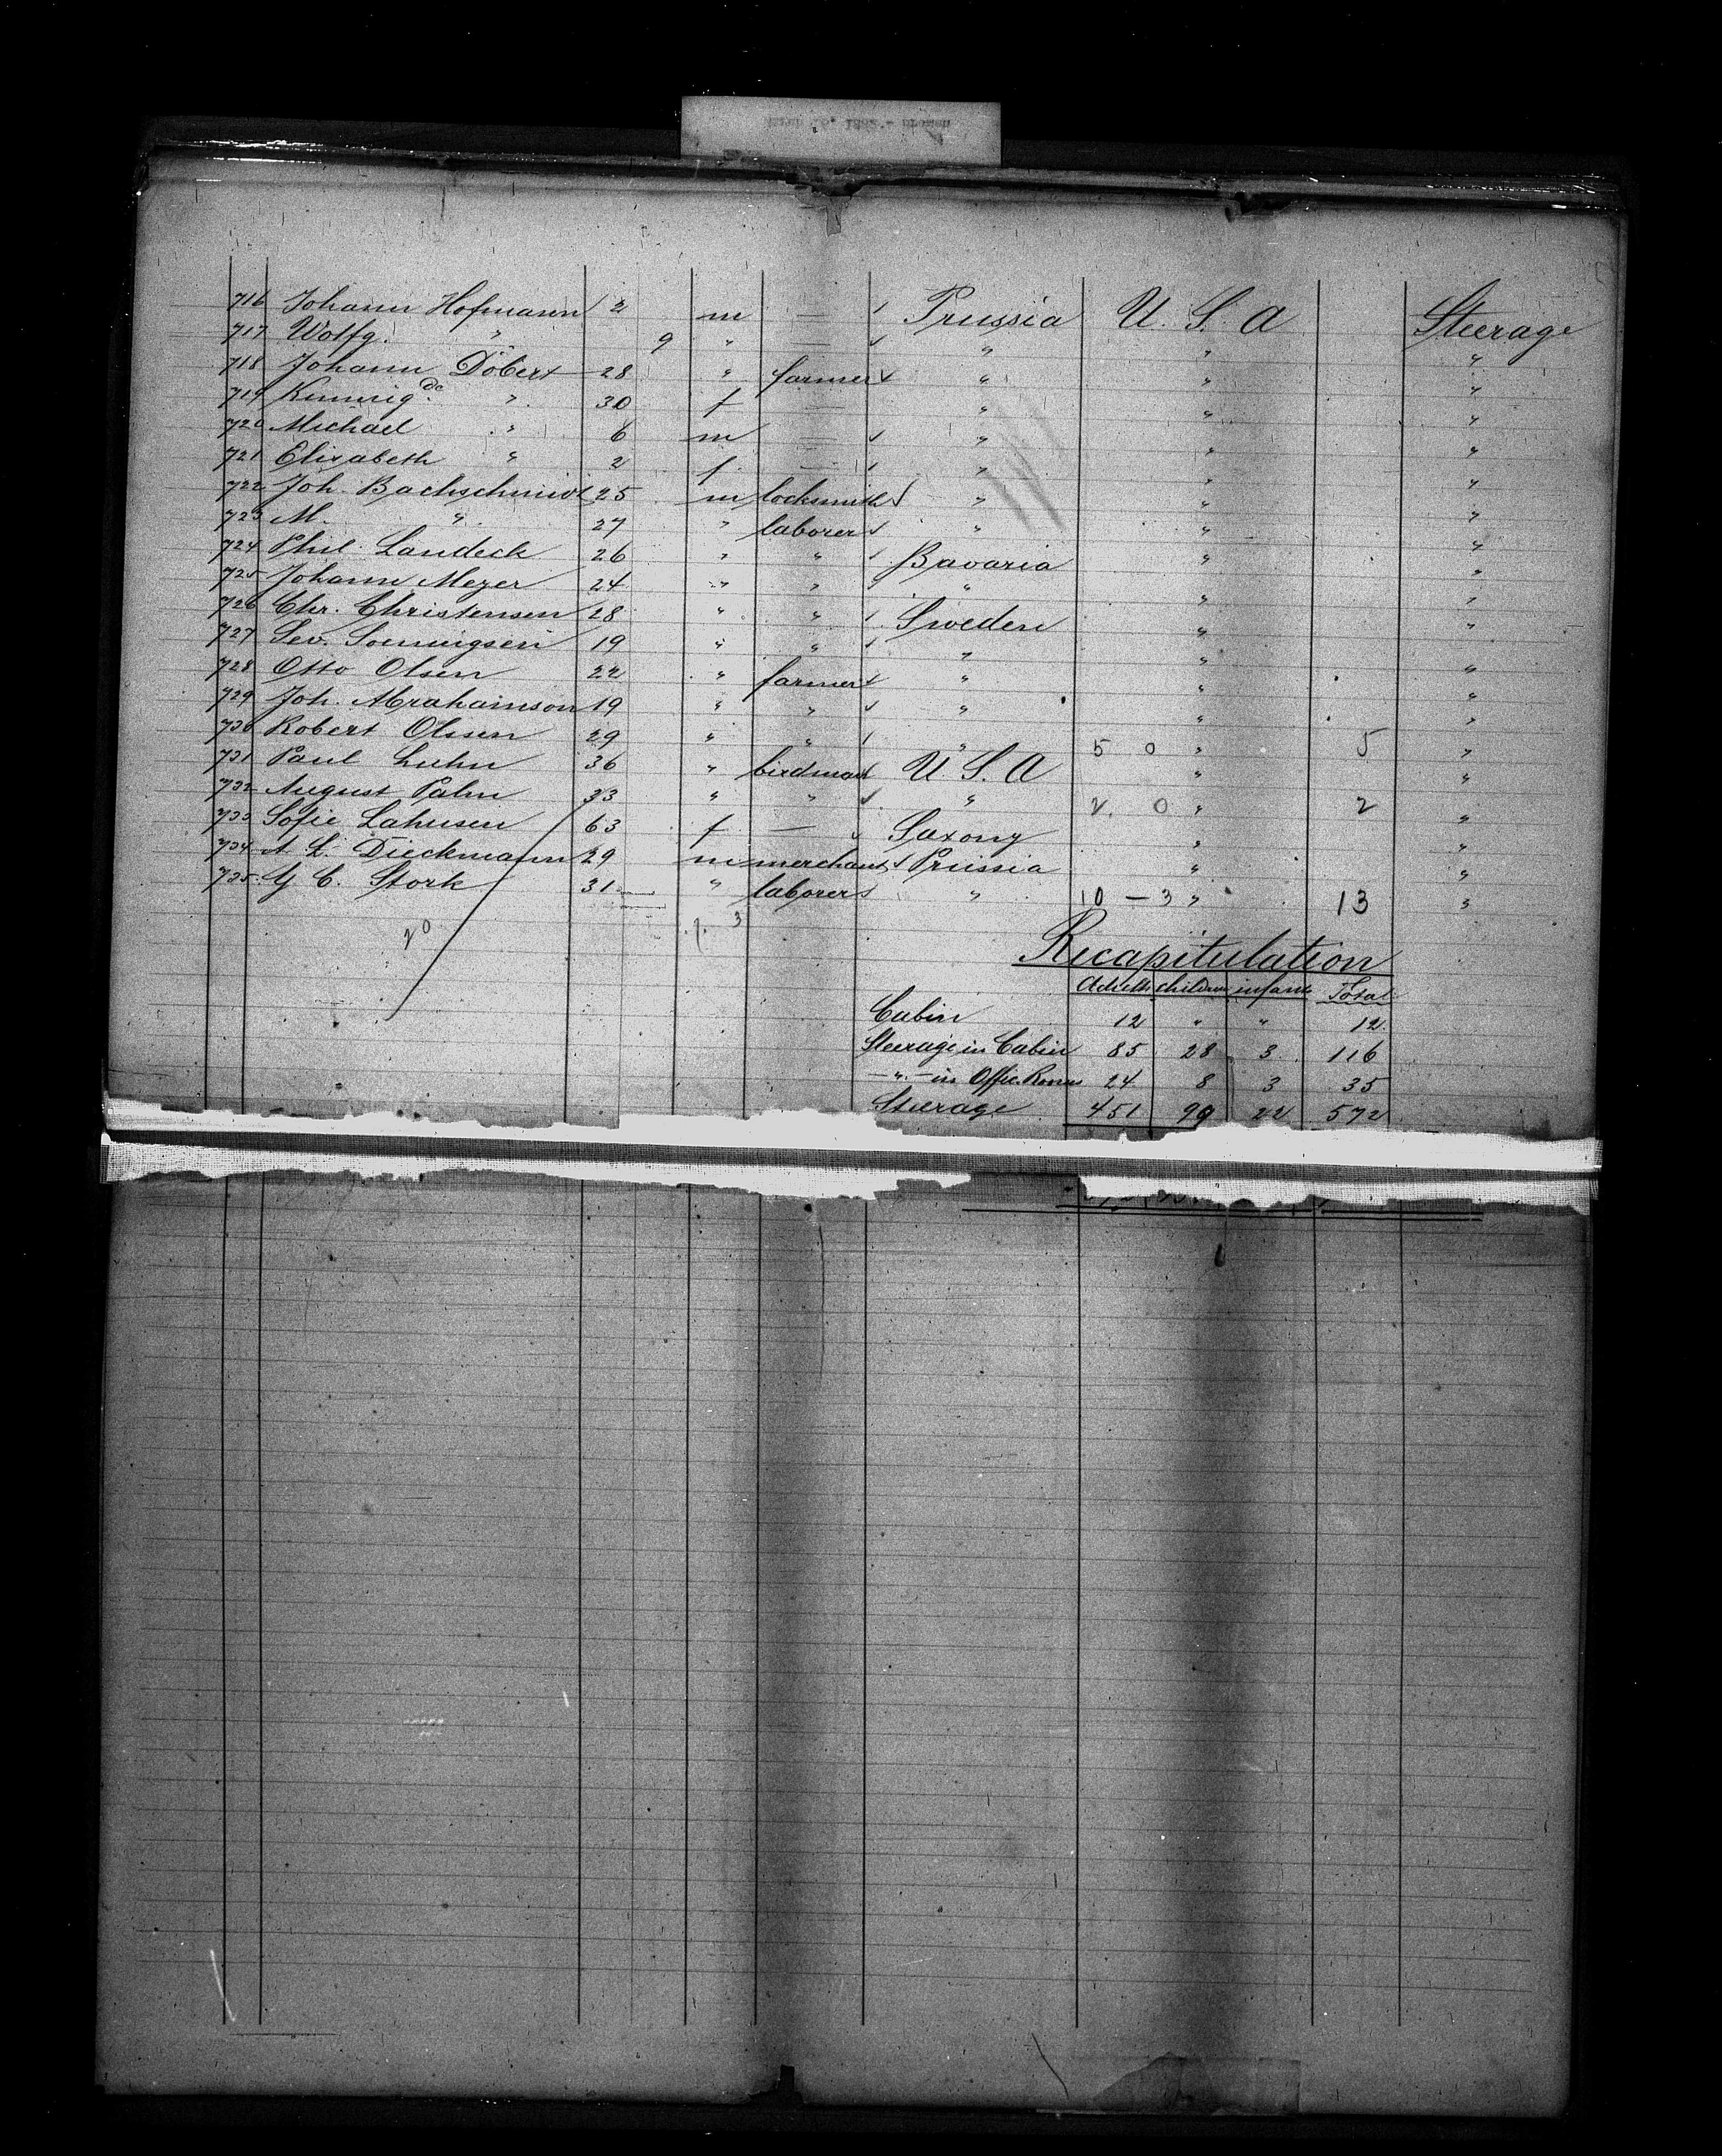 716 Johann Hofmann 2 m — Prussia U. S. A Steerage
717 Wolfg. " 9 " — " " "
718 Johann Döbert 28 " farmer " " "
719 " 30 f " " "
720 Michael " 6 m — " " "
721 Elizabeth " 2 f — " " "
722 Joh. Bachschmidt 25 m locksmith " " "
723 M. " 27 " laborer " " "
724 Phil. Landeck 26 " " Bavaria " "
725 Johann Meyer 24 " " " " "
726 Chr. Christensen 28 " " Sweden " "
727 Sev. 19 " " " " "
728 Otto Olsen 22 " farmer " " "
729 Joh. Abrahamson 19 " " " " "
730 Robert Olsen 29 " " " 5 0 " 5 "
731 Paul Luhn 36 " birdman U. S. A " "
732 August Palm 33 " " " 2 0 " 2 "
733 Sofie Lahusen 63 f — Saxony " "
734 A L. Dieckmann 29 m merchant Prussia " "
735 G C. Stork 31 " laborer " 10 — 3 " 13 "
20 3
Recapitulation
Adults children infants Total
Cabin 12 " " 12
Steerage in Cabin 85 28 3 116
— " — in Offic. Rooms 24 8 3 35
Steerage 451 99 22 572